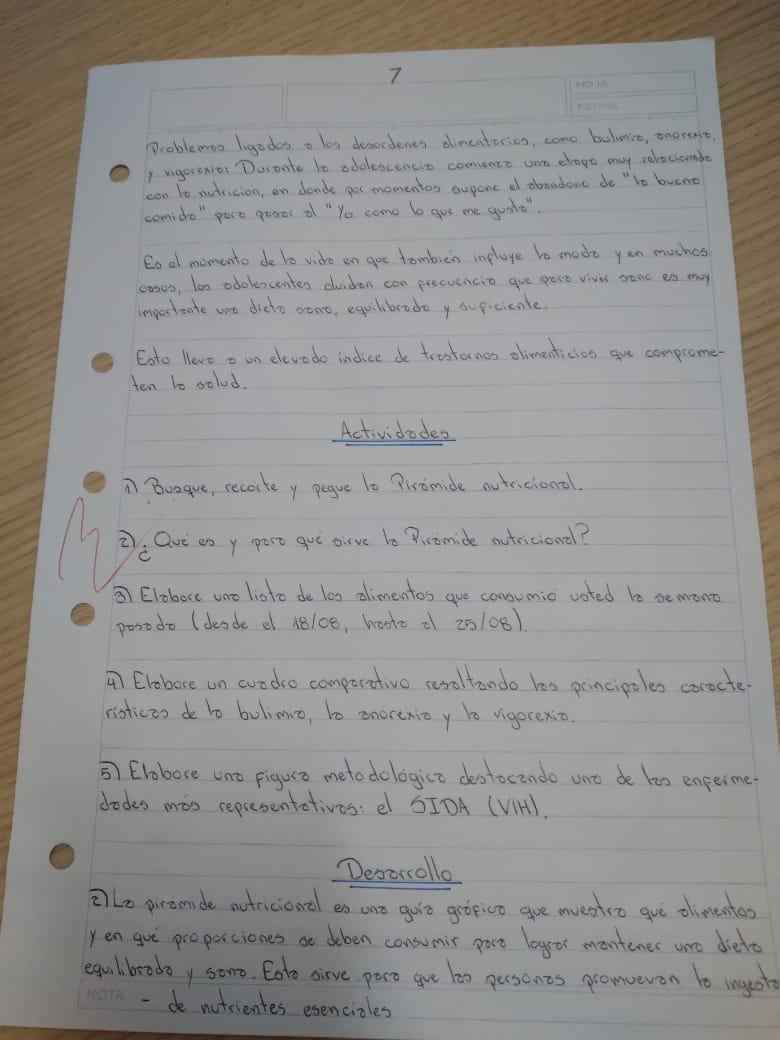 7
NOTA
Problemas ligados a los desordenes alimentarios, como bulimia, anorexia,
y vigorexia: Durante la adolescencia comienza una etapa muy relacionada
con la nutrición, en donde por momentos supone el abandono de "la buena
comida" para pasar al "Yo como lo que me gusta".
Es el momento de la vida en que también influye la moda y en muchos
casos, los adolescentes olvidan con frecuencia que para vivir sano es muy
importante una dieta sana, equilibrada y suficiente.
Esto lleva a un elevado índice de trastornos alimenticios que comprome-
ten la salud.
Actividades
1) Busque, recorte y pegue la Pirámide nutricional.
2) ¿Qué es y para qué sirve la Pirámide nutricional?
3) Elabore una lista de los alimentos que consumio usted la semana
pasada (desde el 18/08, hasta el 25/08).
4) Elabore un cuadro comparativo resaltando las principales caracte-
rísticas de la bulimia, la anorexia y la vigorexia.
5) Elabore una figura metodológica destacando una de las enferme-
dades más representativas: el SIDA (VIH).
Desarrollo
2) La piramide nutricional es una guía gráfica que muestra qué alimentos
y en qué proporciones se deben consumir para lograr mantener una dieta
equilibrada y sana. Esta sirve para que las personas promuevan la ingesta
NOTA - de nutrientes esenciales